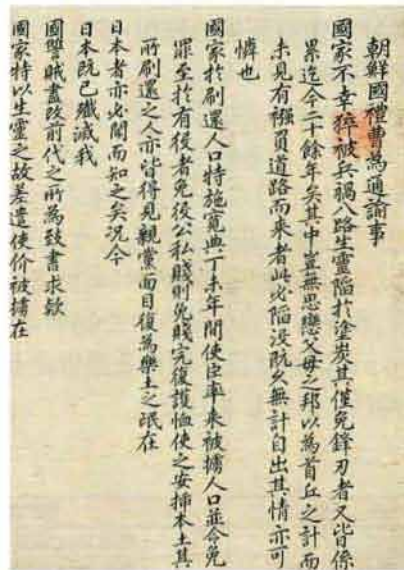 朝鮮國禮曹為通諭事
國家不幸猝被兵禍八路生靈陷於塗炭其僅免鋒刃者又皆係
累迄今二十餘年矣其中豈無思戀父母之邦以為首丘之計而
未見有襁負道路而来者此必陷没既久無計自出其情亦可
憐也
國家於刷還人口特施寬典丁未年間使臣率来被擄人口並令免
罪至於有役者免役公私賤則免賤完復護恤使之安挿本土其
所刷還之人亦皆得見親黨面目復為樂土之氓在
日本者亦必聞而知之矣况今
日本既已殲滅我
國讐賊盡改前代之所為致書求欵
國家特以生靈之故差遣使价被擄在